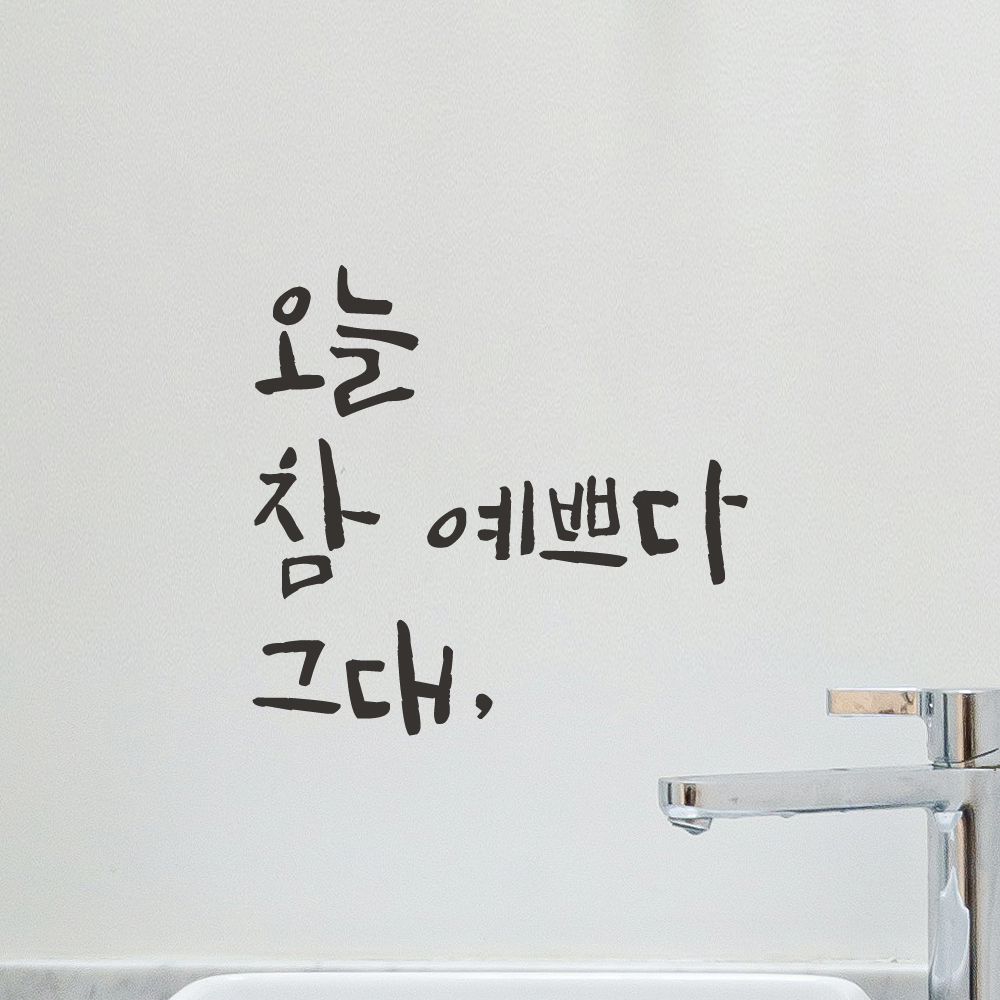 오늘
참 예쁘다
그대,